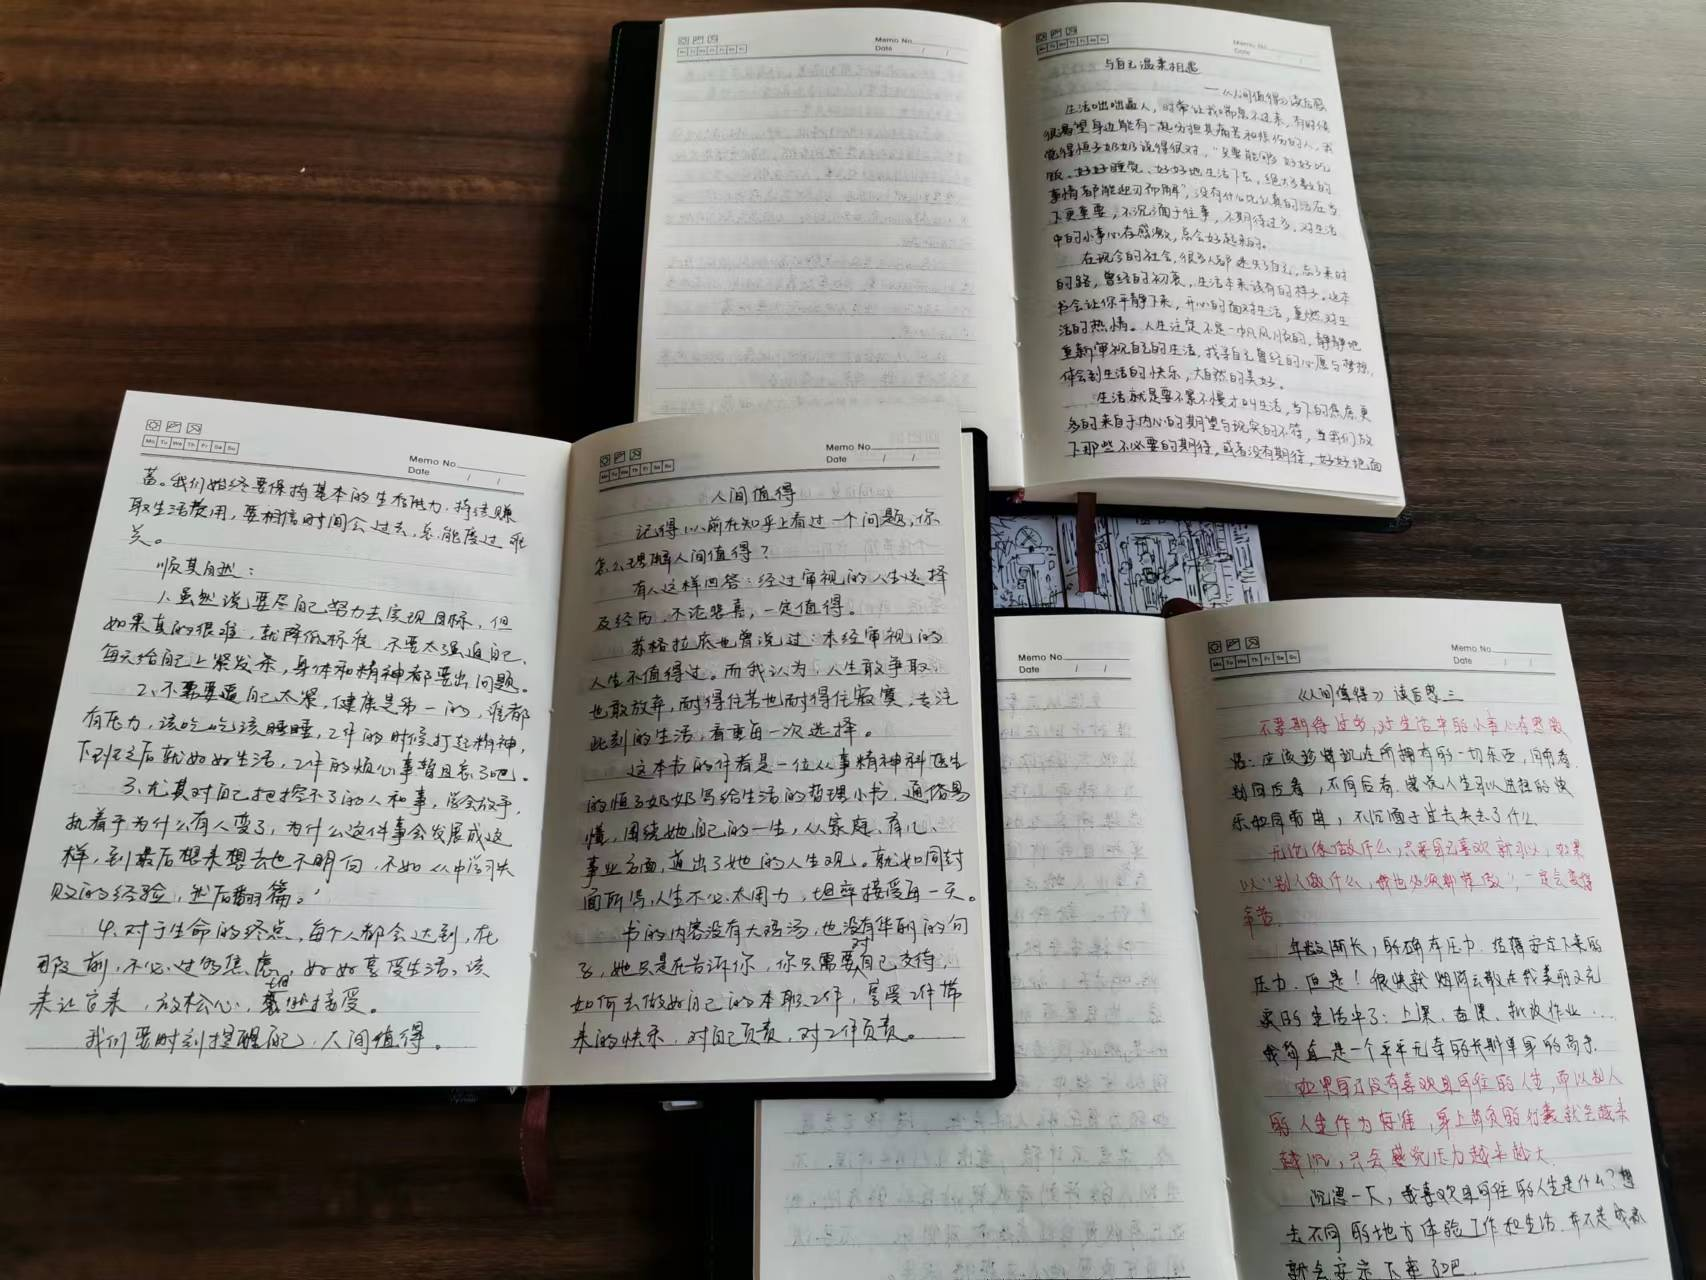 Memo No.
Date / /
Memo No.
Date / /
与自己温柔相遇
——《人间值得》读后感
生活咄咄逼人，时常让我喘息不过来，有时候
很渴望身边能有一起分担其痛苦和悲伤的人，我
觉得恒子奶奶说得很对，“只要能够好好吃
饭、好好睡觉、好好地生活下去，绝大多数的
事情都能迎刃而解”，没有什么比认真的活在当
下更重要，不沉湎于往事，不期待过多，对生活
中的小事心存感激，总会好起来的。
在现今的社会，很多人都迷失了自己，忘了来时
的路，曾经的初衷，生活本来该有的样子。这本
书会让你平静下来，开心的面对生活，重燃对生
活的热情。人生注定不是一帆风顺的，静静地
重新审视自己的生活，找寻自己曾经的心愿与梦想，
体会到生活的快乐，大自然的美好。
生活就是要不紧不慢才叫生活，当下的焦虑更
多的来自于内心的期望与现实的不符，当我们放
下那些不必要的期待，或者没有期待，好好地面
Mo Tu We Th Fr Sa Su
Memo No.
Date / /
蓄。我们始终要保持基本的生存能力，持续赚
取生活费用，要相信时间会过去，总能度过难
关。
顺其自然：
1、虽然说要尽自己努力去实现目标，但
如果真的很难，就降低标准，不要太强迫自己，
每天给自己上紧发条，身体和精神都要出问题。
2、不需要逼自己太紧，健康是第一的，谁都
有压力，该吃吃该睡睡，工作的时候打起精神，
下班之后就好好生活，工作的烦心事暂且忘了吧。
3、尤其对自己把控不了的人和事，学会放手，
执着于为什么有人变了，为什么这件事会发展成这
样，到最后想来想去也不明白，不如从中学习失
败的经验，然后翻篇。
4、对于生命的终点，每个人都会达到，在
那之前，不必过多焦虑，好好享受生活。该
来让它来，放松心，坦然接受。
我们要时刻提醒自己，人间值得。
Mo Tu We Th Fr Sa Su
Memo No.
Date / /
人间值得
记得以前在知乎上看过一个问题，你
怎么理解人间值得？
有人这样回答：经过审视的人生选择
及经历，不论悲喜，一定值得。
苏格拉底也曾说过：未经审视的
人生不值得过。而我认为，人生敢争取
也敢放弃，耐得住苦也耐得住寂寞，专注
此刻的生活，看重每一次选择。
这本书的作者是一位从事精神科医生
的恒子奶奶写给生活的哲理小书，通俗易
懂，围绕她自己的一生，从家庭、育儿、
事业方面，道出了她的人生观。就如同封
面所写，人生不必太用力，坦率接受每一天。
书的内容没有大鸡汤，也没有华丽的句
子，她只是在告诉你，你只需要对自己交待，
如何去做好自己的本职工作，享受工作带
来的快乐，对自己负责，对工作负责。
Memo No.
Date / /
Mo Tu We Th Fr Sa Su
Memo No.
Date / /
《人间值得》读后感三
不要期待过多，对生活中的小事心存感激
悟：应该珍惜现在所拥有的一切东西，向前看
别回后看，不向后看，
乐和同前进，不沉湎于过去失去了什么
无论你做什么，只要自己喜欢就可以，如果
以“别人做什么，我也必须那样做”，一定会变得
辛苦
年数渐长，的确有压力，结婚安定下来的
压力，但是！很快就烟消云散在我美丽又充
实的生活中了：上课、查课、批改作业……
我简直是一个平平无奇的长期单身的高手。
如果自己没有喜欢且向往的人生，而以别人
的人生作为标准，身上背负的行囊就会越来
越沉，只会感觉压力越来越大
沉思一下，我喜欢且向往的人生是什么？想
去不同的地方体验工作和生活，并不是成家
就会安定下来了吧